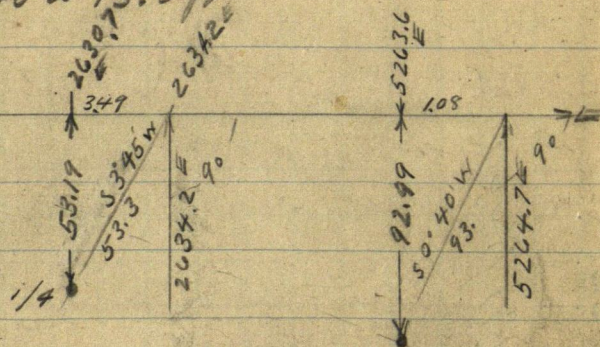 2630.7
E
3.49
2634.2 E
53.19
S 3° 45' W
53.3
2634.2 E
90
1/4
5263.6
E
1.08
E
92.99
S 0° 40' W
93.
5264.7 E
90